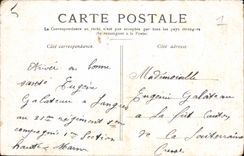 5
1
CARTE POSTALE
La Correspondance au recto n'est pas acceptée par tous les pays étrangers
(Se renseigner à la Poste)
Côté correspondance.
Côté adresse.
Arrivé en bonne
santé Eugène
Galateau à Langres
au 21e régiment
compagnie 1e Section
haute Marne
Mademoiselle
Eugénie Galateau
à la
de la Souterraine
Creuse